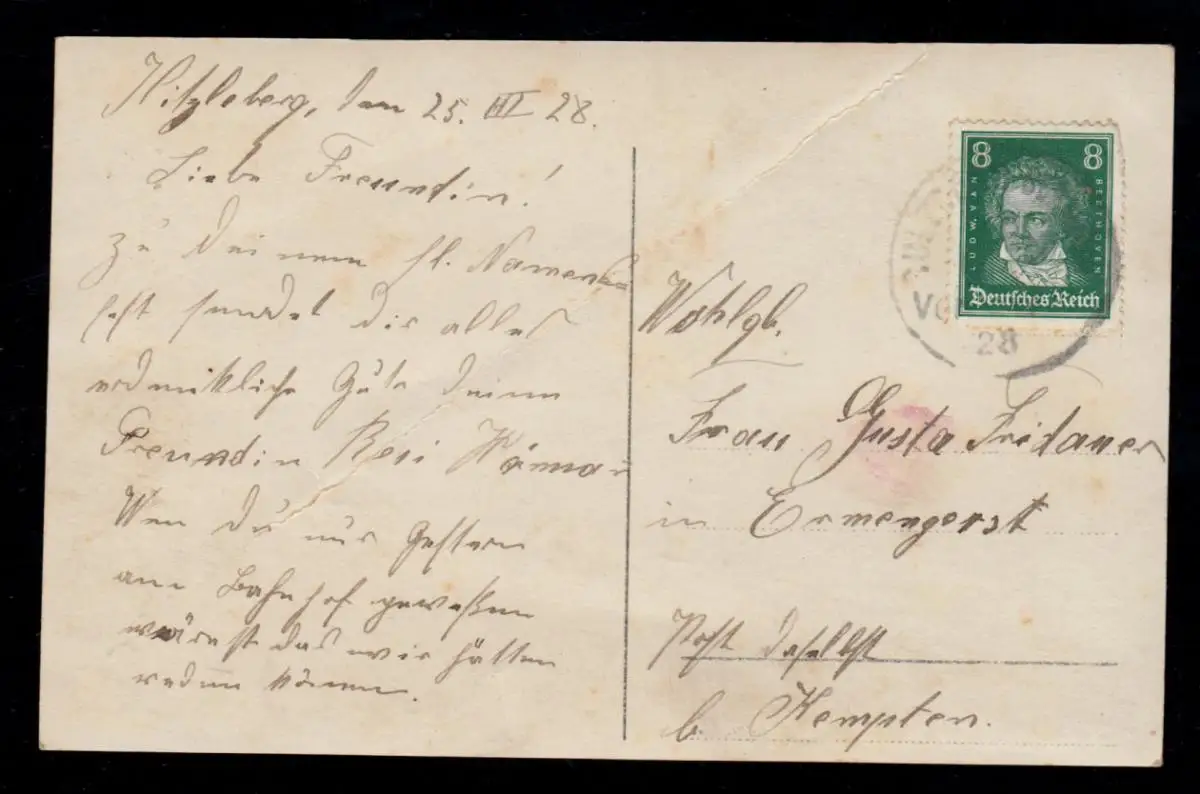 Hitzleberg, den 25. III 28.
Liebe Freundin!
Zu Deinem hl. Namens
fest sendet dir alles
erdenkliche Gute deine
Freundin Resi
Wen Du nur Gestern
am Bahnhof geweßen
wärest das wir hätten
reden können.
8 8
LUDW. VAN BEETHOVEN
Deutsches Reich
28
Wohlgb.
Frau Gusta Fridauer
in Ermengerst
Post daselbst
b. Kempten.